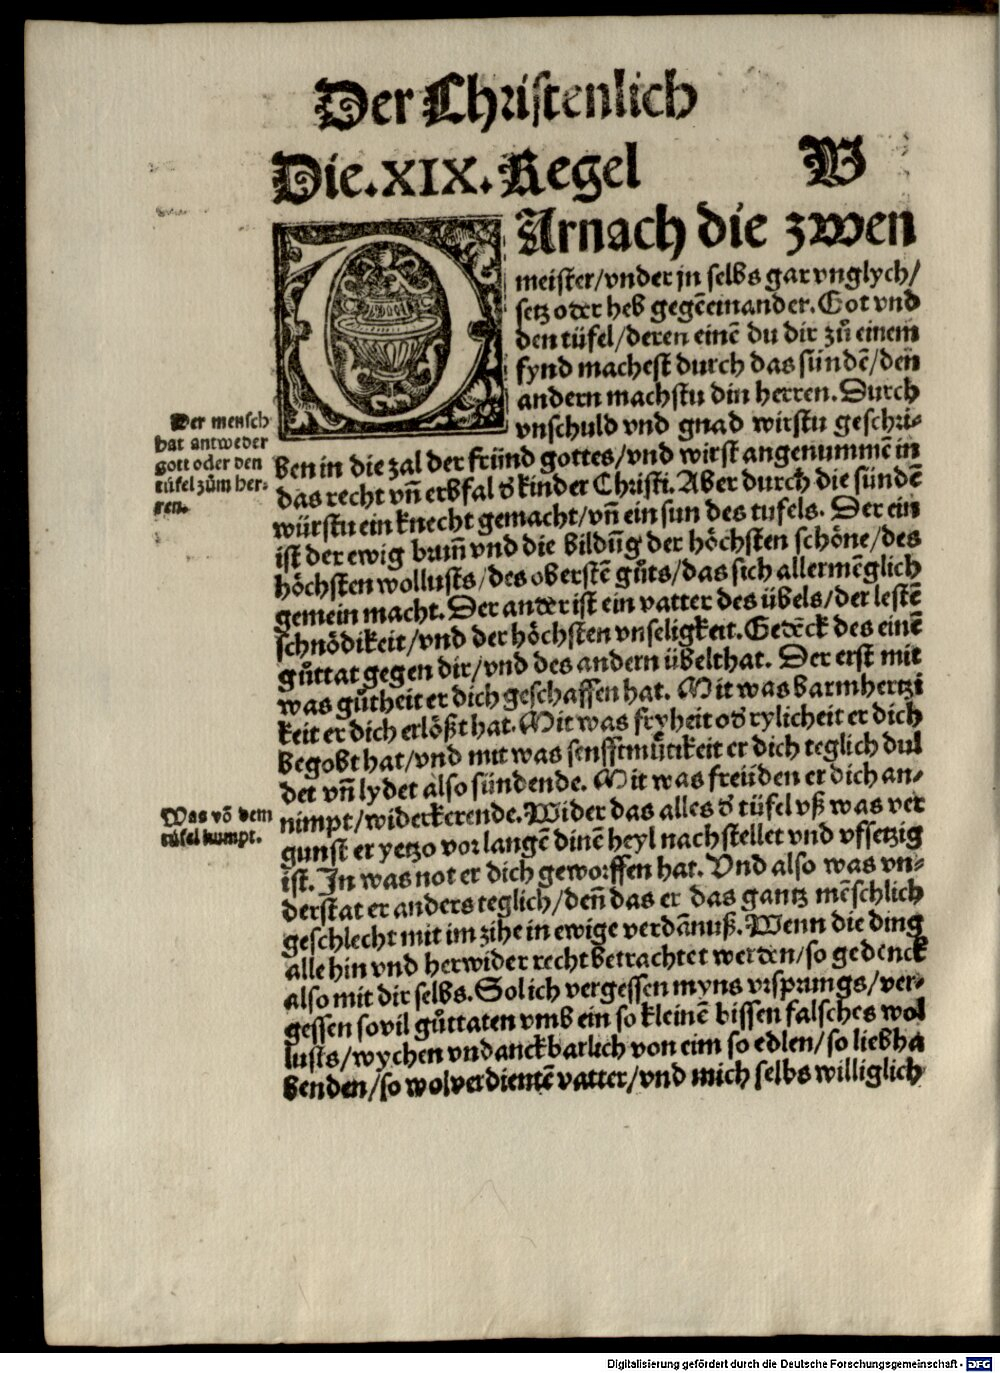 Der Christenlich
Die.XIX.Regel W
DArnach die zwen
meister/vnder jn selbs gar vnglych/
setz oder heb gegēeinander. Got vnd
den tüfel/deren einē du dir zů einem
fynd machest durch das sündē/den
andern machstu din herren. Durch
vnschuld vnd gnad wirstu geschri-
ben in die zal der fründ gottes/vnd wirst angenummē in
das recht vñ erbfal d' kinder Christi. Aber durch die sündē
würstu ein knecht gemacht/vñ ein sun des tufels. Der ein
ist der ewig brun̄ vnd die bildūg der höchsten schöne/des
höchsten wollusts/des oberstē gůts/das sich allermēglich
gemein macht. Der ander ist ein vatter des übels/der lestē
schnödikeit/vnd der höchsten vnseligkeit. Gedēck des einē
gůttat gegen dir/vnd des andern übelthat. Der erst mit
was gůtheit er dich geschaffen hat. Mit was barmhertzi
keit er dich erlößt hat. Mit was fryheit od' rylicheit er dich
begobt hat/vnd mit was senfftmůtikeit er dich teglich dul
det vñ lydet also sündende. Mit was freüden er dich an-
nimpt/widerkerende. Wider das alles d' tüfel vß was ver
gunst er yetzo vor langē dinē heyl nachstellet vnd vffsetzig
ist. In was not er dich geworffen hat. Vnd also was vn-
derstat er anders teglich/deñ das er das gantz mēschlich
geschlecht mit im zihe in ewige verdānuß. Wenn die ding
alle hin vnd herwider recht betrachtet werden/so gedenck
also mit dir selbs. Sol ich vergessen myns vrsprungs/ver-
gessen sovil gůttaten vmb ein so kleinē bissen falsches wol
lusts/wychen vndanckbarlich von eim so edlen/so liebha
benden/so wolverdientē vatter/vnd mich selbs williglich
Der mensch
hat antweder
gott oder den
tüfel zům her-
ren.
Was vō dem
tüfel kumpt.
Digitalisierung gefördert durch die Deutsche Forschungsgemeinschaft - DFG